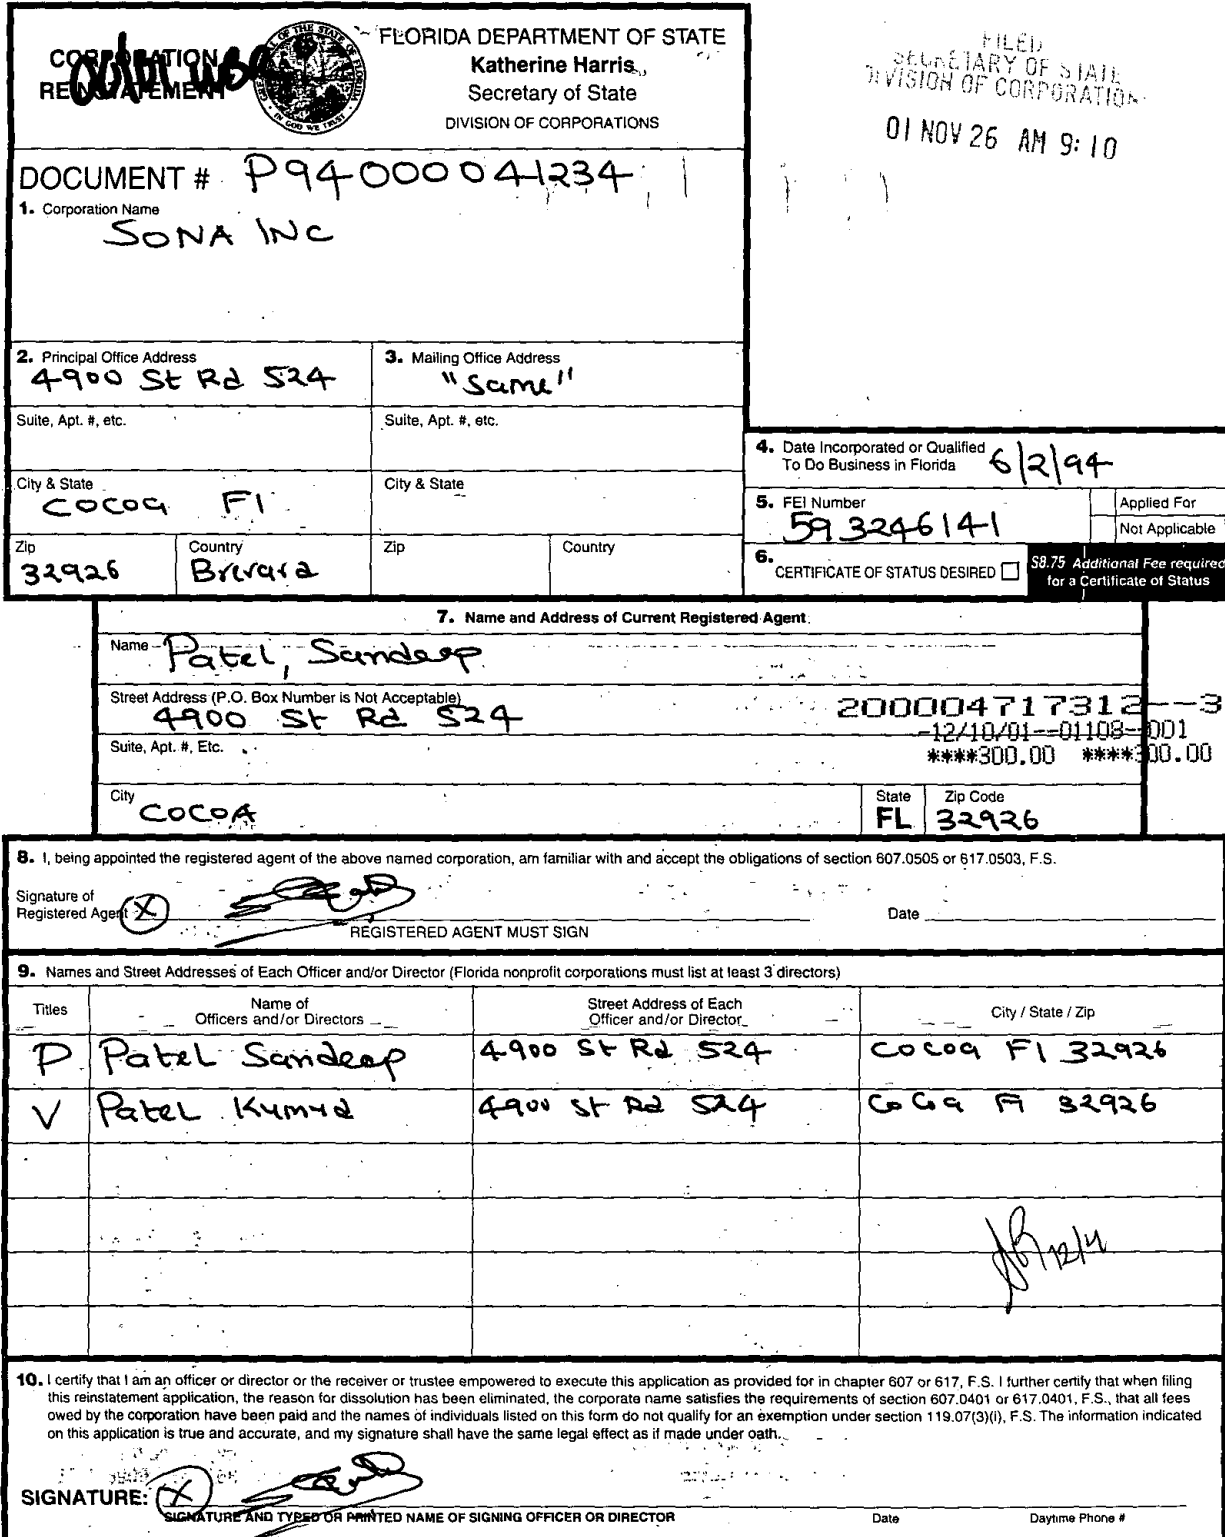 CORPORATION
REINSTATEMENT
FLORIDA DEPARTMENT OF STATE
Katherine Harris
Secretary of State
DIVISION OF CORPORATIONS
FILED
SECRETARY OF STATE
DIVISION OF CORPORATION
01 NOV 26 AM 9:10
DOCUMENT # P94000041234
1. Corporation Name
SONA INC
2. Principal Office Address
4900 St Rd 524
3. Mailing Office Address
"Same"
Suite, Apt. #, etc.
Suite, Apt. #, etc.
City & State
COCOA Fl
City & State
Zip
32926
Country
Brevard
Zip
Country
4. Date Incorporated or Qualified
To Do Business in Florida 6/2/94
5. FEI Number
593246141
Applied For
Not Applicable
6. CERTIFICATE OF STATUS DESIRED
$8.75 Additional Fee required
for a Certificate of Status
7. Name and Address of Current Registered Agent
Name
Patel, Sandeep
Street Address (P.O. Box Number is Not Acceptable)
4900 St Rd 524
200004717312--3
-12/10/01--01108--001
****300.00 ****300.00
Suite, Apt. #, Etc.
City
COCOA
State
FL
Zip Code
32926
8. I, being appointed the registered agent of the above named corporation, am familiar with and accept the obligations of section 607.0505 or 617.0503, F.S.
Signature of
Registered Agent X
Date
REGISTERED AGENT MUST SIGN
9. Names and Street Addresses of Each Officer and/or Director (Florida nonprofit corporations must list at least 3 directors)
Titles
Name of
Officers and/or Directors
Street Address of Each
Officer and/or Director
City / State / Zip
P Patel Sandeep 4900 St Rd 524 Cocoa Fl 32926
V Patel Kumud 4900 St Rd 524 CoCoa Fl 32926
12/4
10. I certify that I am an officer or director or the receiver or trustee empowered to execute this application as provided for in chapter 607 or 617, F.S. I further certify that when filing
this reinstatement application, the reason for dissolution has been eliminated, the corporate name satisfies the requirements of section 607.0401 or 617.0401, F.S., that all fees
owed by the corporation have been paid and the names of individuals listed on this form do not qualify for an exemption under section 119.07(3)(i), F.S. The information indicated
on this application is true and accurate, and my signature shall have the same legal effect as if made under oath.
SIGNATURE: X
SIGNATURE AND TYPED OR PRINTED NAME OF SIGNING OFFICER OR DIRECTOR
Date
Daytime Phone #